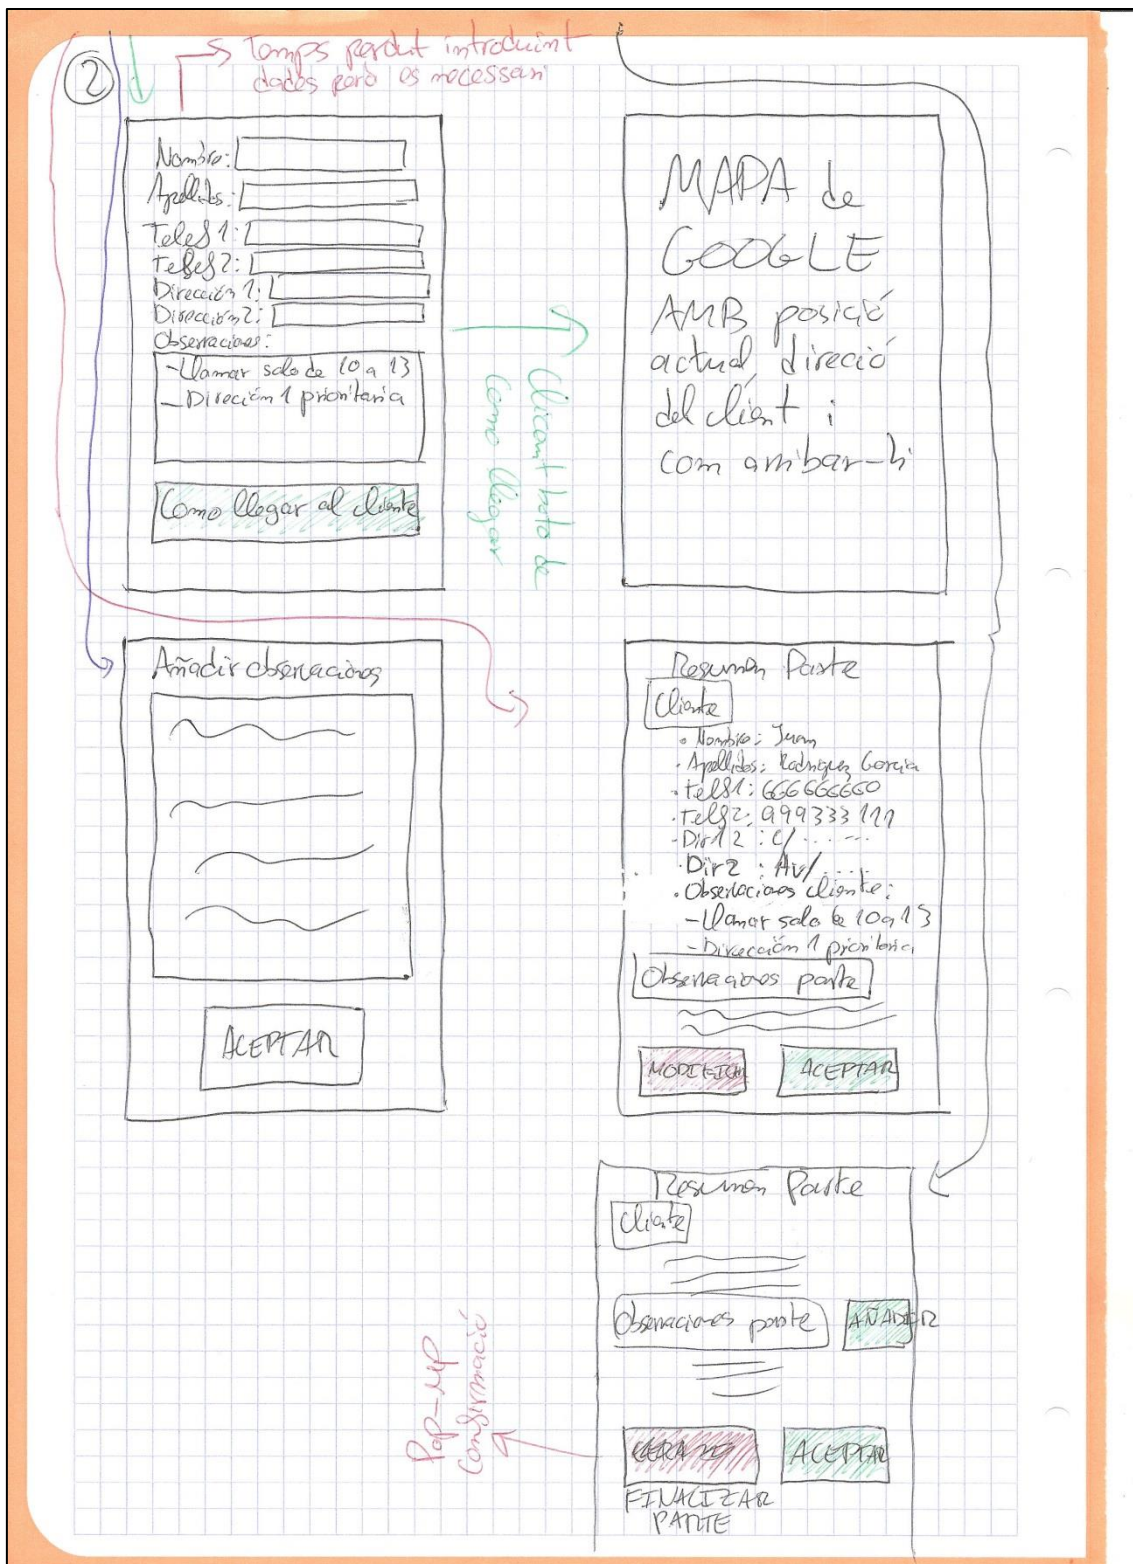 ②
Temps perdut introduint
dades però es necessari
Nombre:
Apellidos:
Telef 1:
Telef 2:
Dirección 1:
Dirección 2:
Observaciones:
-Llamar solo de 10 a 13
-Direción 1 prioritaria
Como llegar al cliente
Clicant botó de
Como llegar
MAPA de
GOOGLE
AMB posició
actual, direció
del client i
com arribar-hi
Añadir observaciones
ACEPTAR
Resumen Parte
Cliente
• Nombre: Juan
• Apellidos: Rodriguez Garcia
• Telf 1: 666666660
• Telf 2: 999333111
• Dir1 2 : C/ ... ...
• Dir 2 : Av/ ....
• Observaciones cliente:
-Llamar solo de 10 a 13
-Dirección 1 prioritaria
Observaciones parte
MODIFICAR
ACEPTAR
Resumen Parte
Cliente
Observaciones parte
AÑADIR
ACEPTAR
FINALIZAR
PARTE
Pop-UP
Confirmació